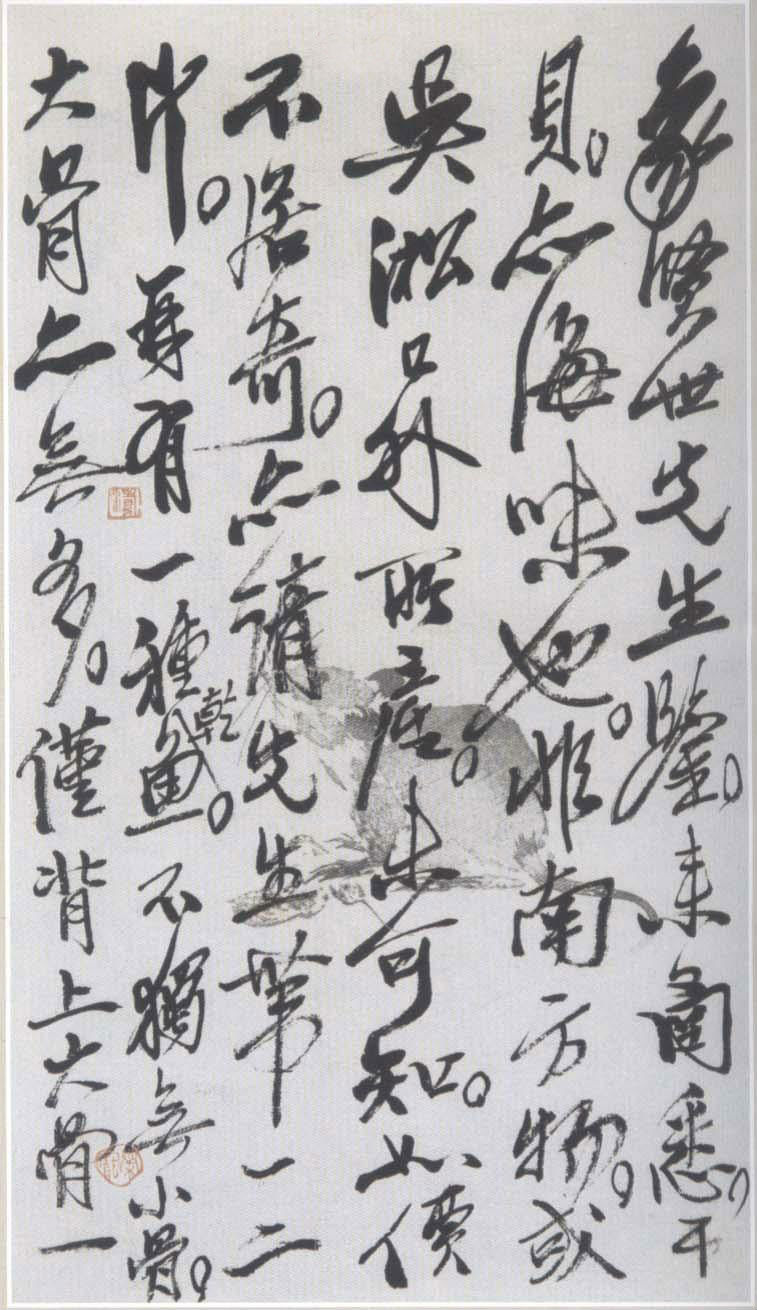 象賢世先生鑒。来圅悉。干
貝。亦海味也。非南方物。或
吳淞口外所產。未可知。如價
不居奇。亦請先生帶一二
斤。再有一種魚乾。不獨無小骨。
大骨亦無多。僅背上大骨一